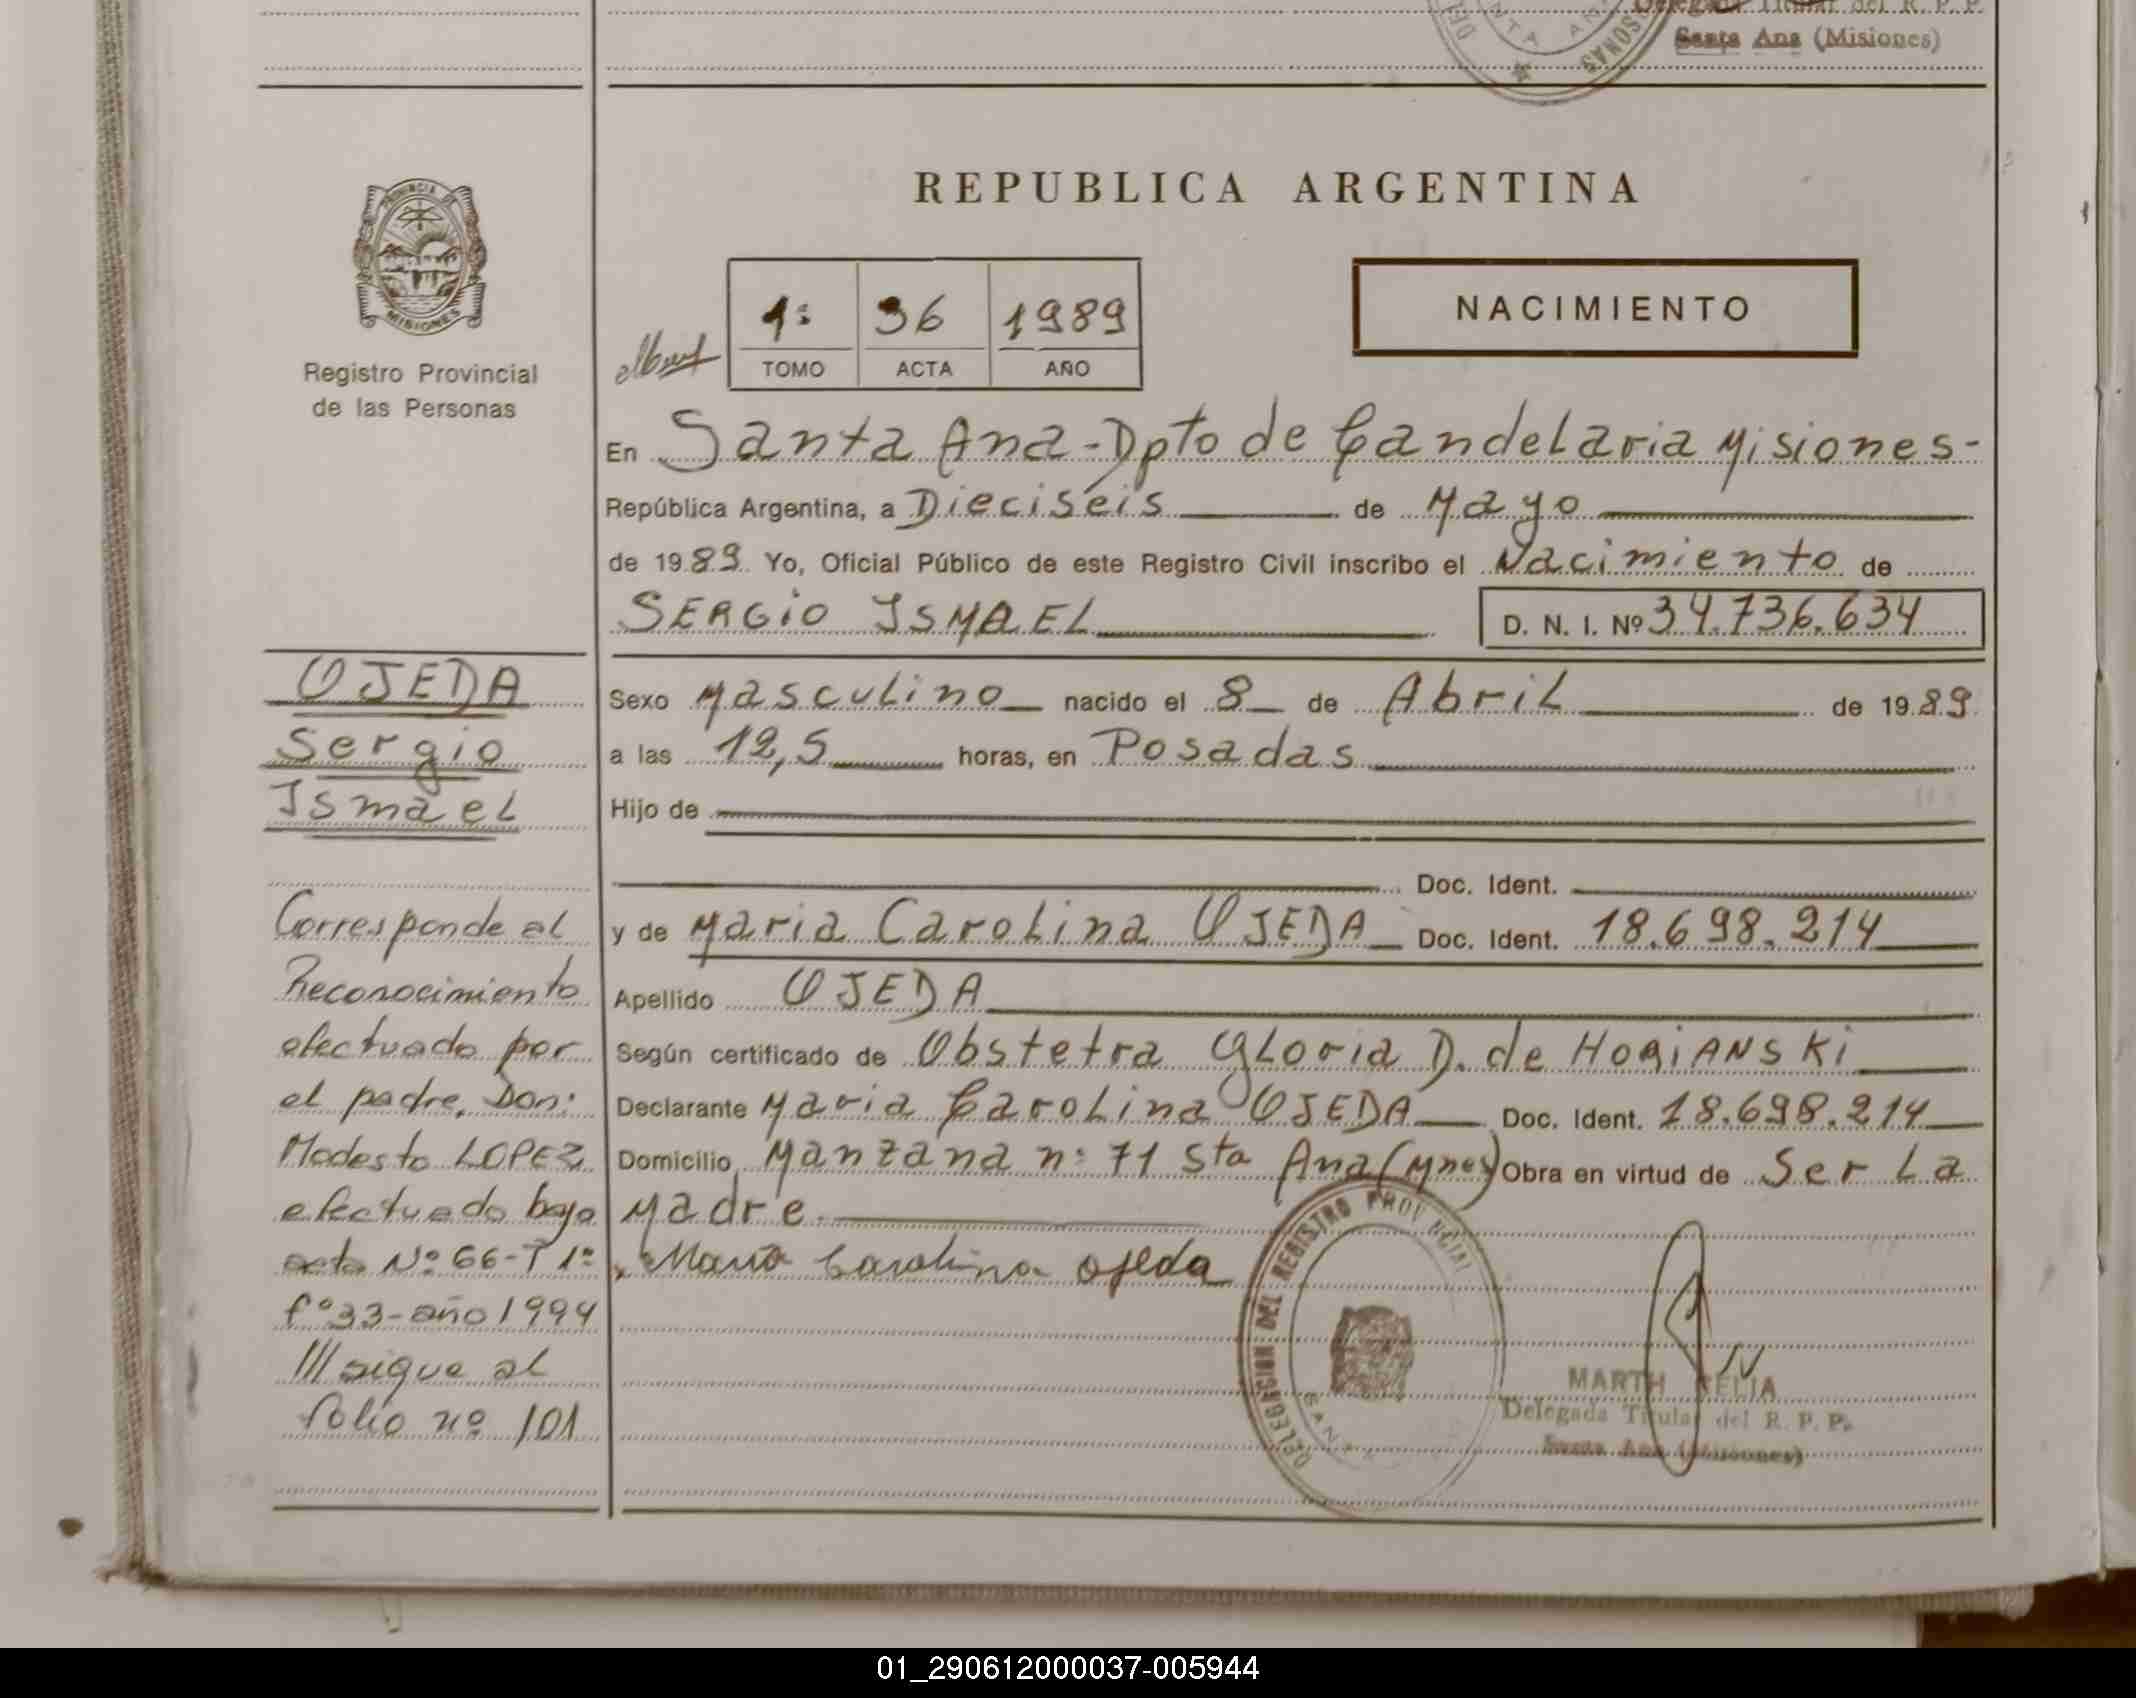 Delegada Titular del R. P. P.
Santa Ana (Misiones)
PROVINCIA DE
MISIONES
Registro Provincial
de las Personas
REPUBLICA ARGENTINA
1º 36 1989
TOMO ACTA AÑO
NACIMIENTO
En Santa Ana - Dpto de Candelaria Misiones -
República Argentina, a Dieciséis de Mayo
de 1989 Yo, Oficial Público de este Registro Civil inscribo el Nacimiento de
SERGIO ISMAEL D. N. I. Nº 34.736.634
OJEDA
Sergio
Ismael
Sexo Masculino nacido el 8 de Abril de 1989
a las 12,5 horas, en Posadas
Hijo de
Doc. Ident.
y de Maria Carolina OJEDA Doc. Ident. 18.698.214
Apellido OJEDA
Según certificado de Obstetra Gloria D. de
Declarante Maria Carolina OJEDA Doc. Ident. 18.698.214
Domicilio Manzana nº 71 Sta Ana (Mnes) Obra en virtud de Ser La
Madre
Maria Carolina Ojeda
Corresponde al
Reconocimiento
efectuado por
el padre, Don:
Modesto LOPEZ
efectuado bajo
acta Nº 66-T 1º
fº 33-año 1994
///sigue al
folio nº 101
DELEGACION DEL REGISTRO PROVINCIAL
SANTA
MARTH
Delegada Titular del R. P. P.
Santa Ana (Misiones)
01_290612000037-005944